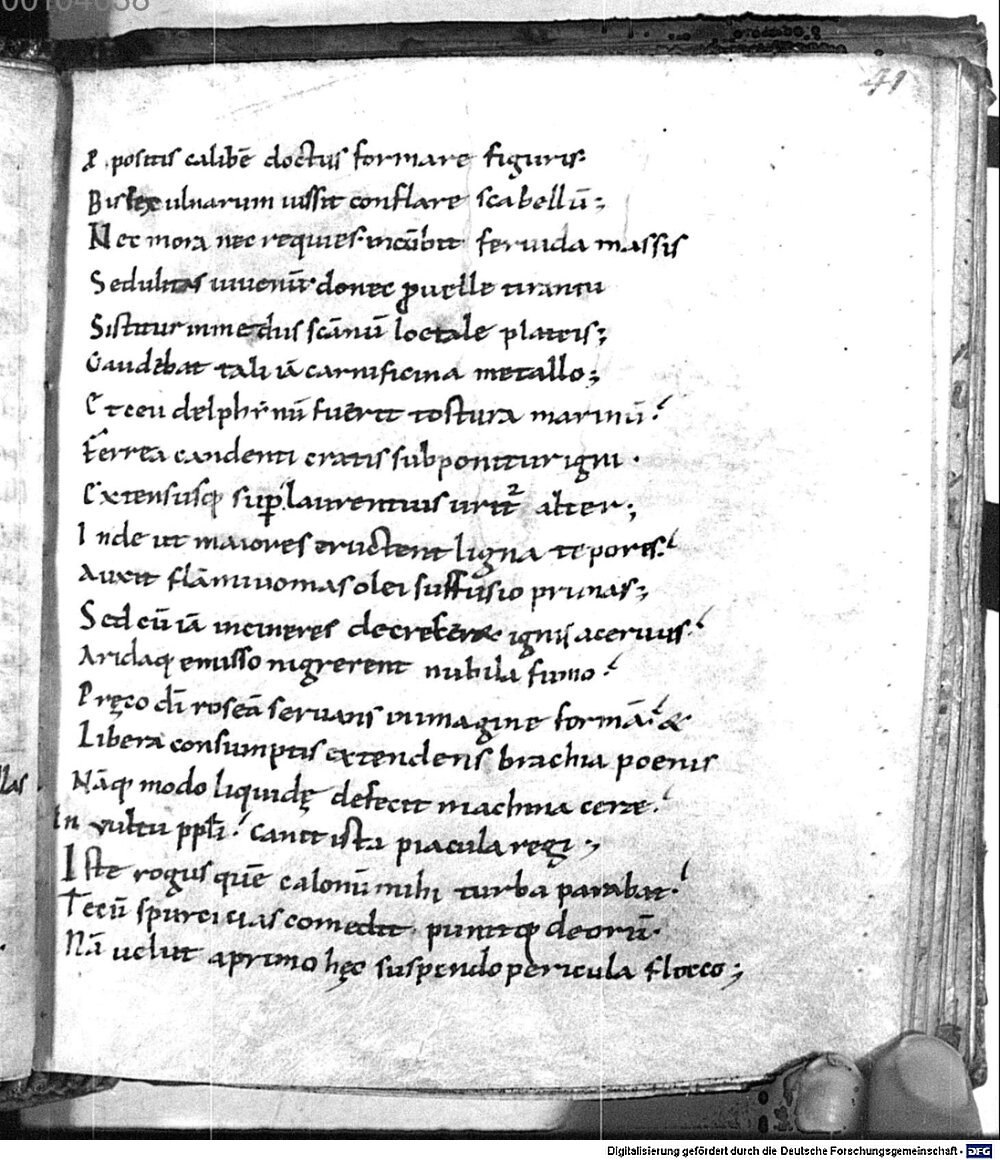 00104038
41
& positis calibē doctus formare figuris.
Bis sex ulnarum iussit conflare scabellū;
Nec mora nec requies incūbit feruida massis
Sedulitas iuuenū donec puelle tiranni
Sistitur in medius scānū loetale plateis;
Gaudebat tali iā carnificina metallo;
Et ceu delphinū fuerit tostura marinū.
Ferrea candenti cratis subponitur igni.
Extensusq sup laurentius urit alter;
Inde ut maiores eructent ligna tepores.
Auxit flāmiuomas olei suffusio prunas;
Sed cū iā incineres decrescere ignis aceruus.
Aridaq emisso nigrerent nubila fumo.
Pręco dī roseā seruans in imagine formā. &
Libera consumptis extendens brachia poenis
Nāq modo liquidę defecit machina cerae.
In uultu ppli. Canit ista piacula regi;
Iste rogus quē calonū mihi turba parabat.
Tecū spurcicias comedit punitq deorū.
Nā uelut a primo hęc suspendo pericula flocco;
las
Digitalisierung gefördert durch die Deutsche Forschungsgemeinschaft - DFG